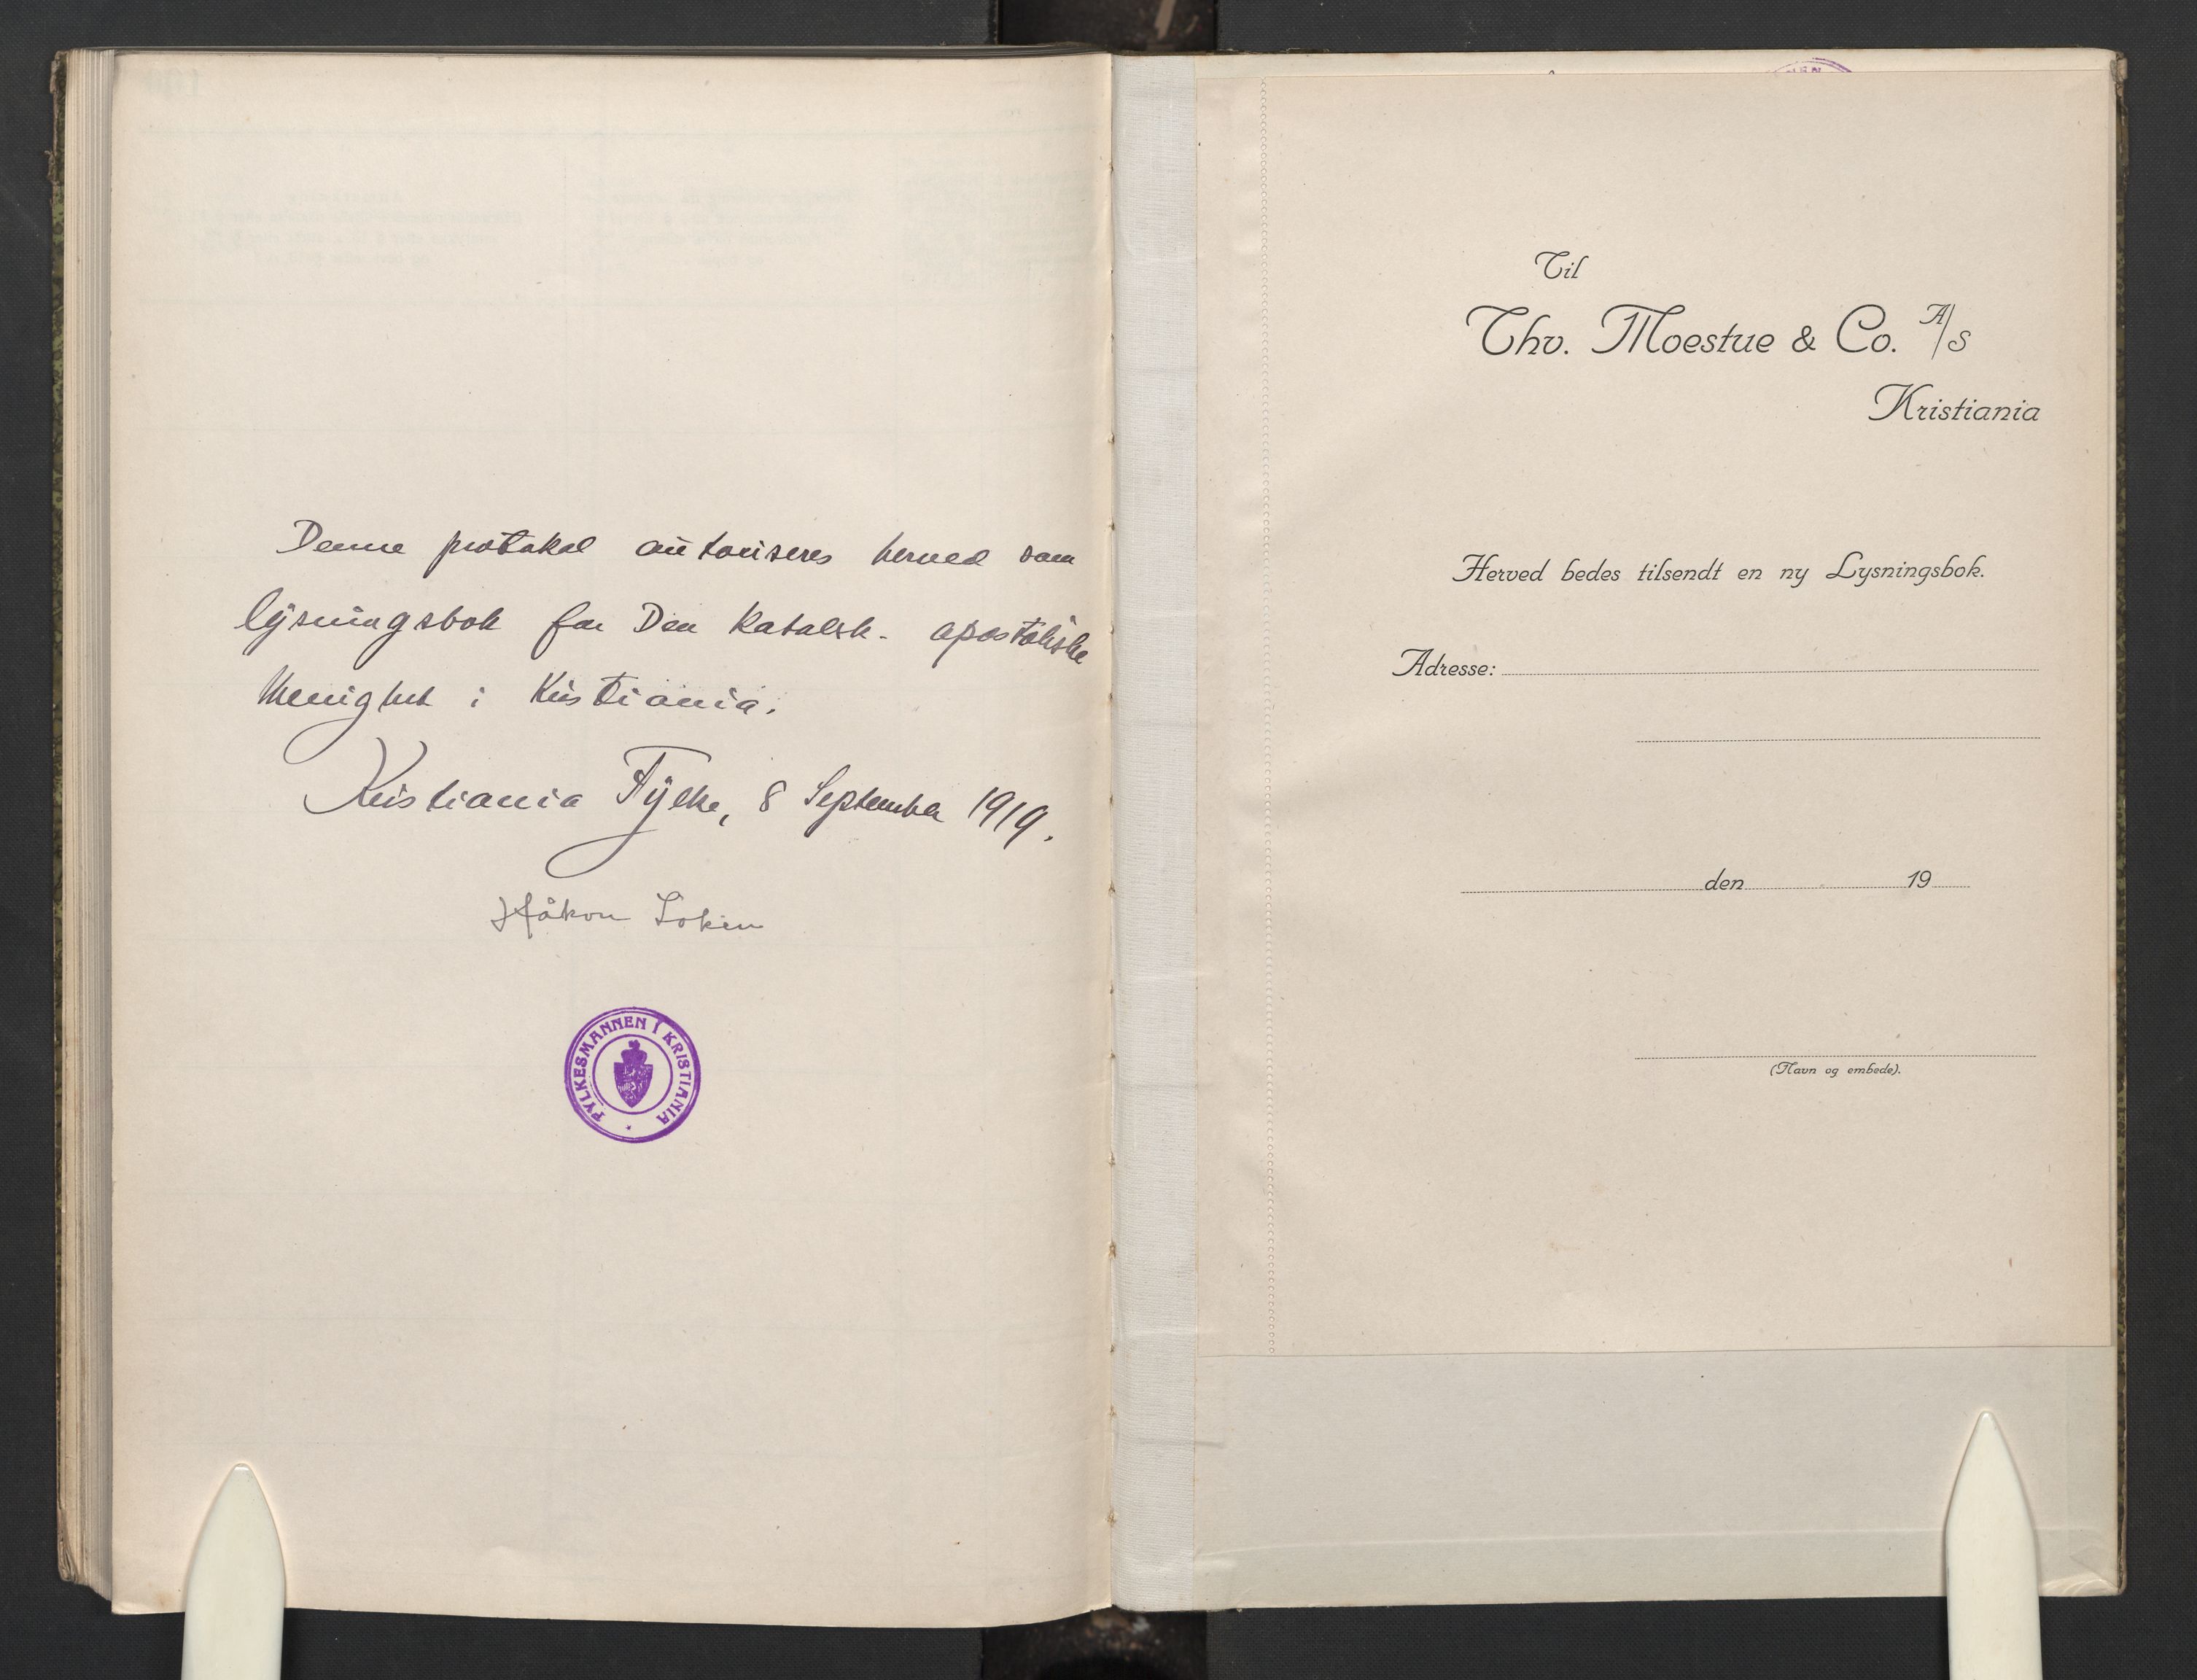 Denne protokol autoriseres herved som
lysningsbok for Den katolsk-apostoliske
Menighet i Kristiania.
Kristiania Fylke, 8 September 1919.
Håkon Løken
FYLKESMANNEN I KRISTIANIA
Til
Thv. Moestue & Co. A/S
Kristiania
Herved bedes tilsendt en ny Lysningsbok.
Adresse:
den 19
(Navn og embede).